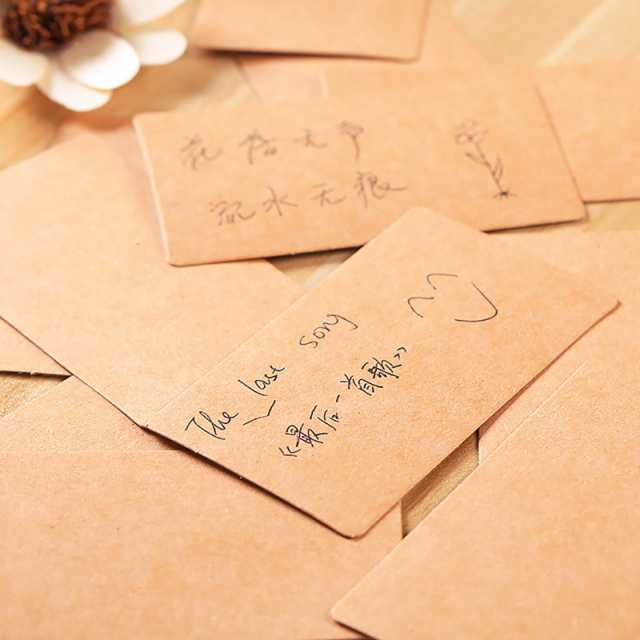 花落无声
流水无痕
The last song
《最后一首歌》